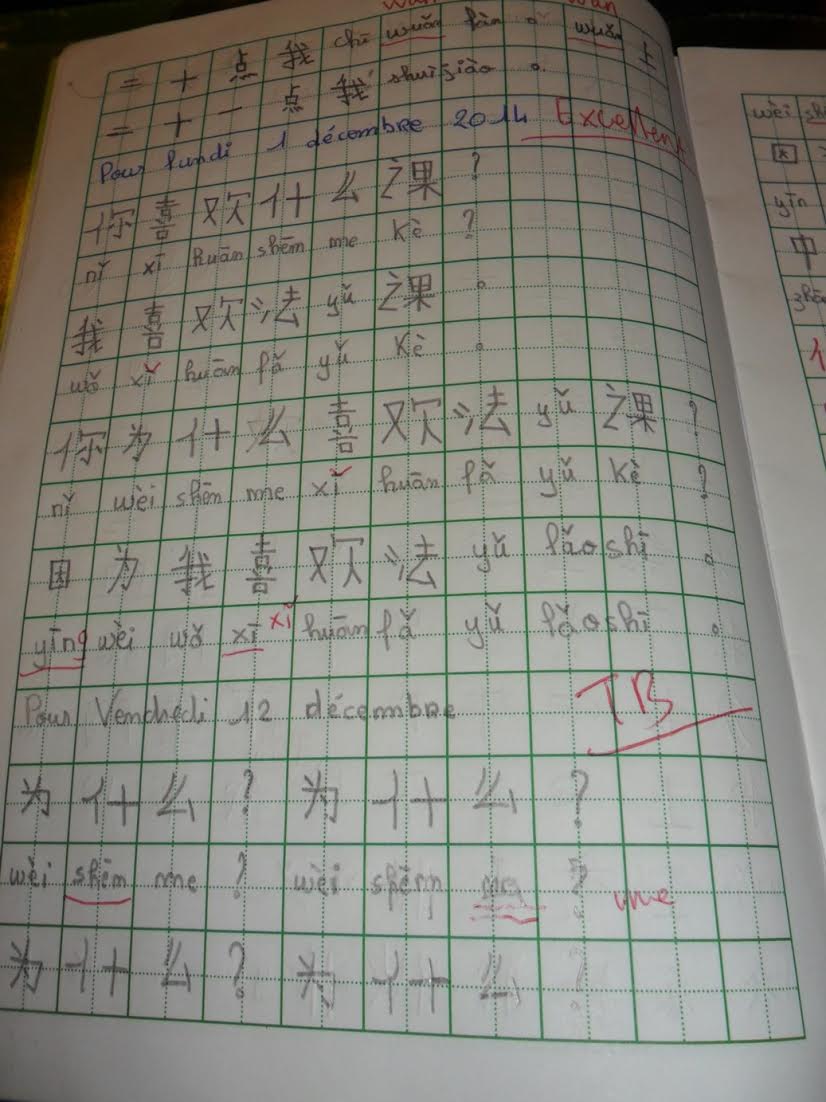 wǎn wǎn
二 十 点 我 chī wuǎn fàn 。 wuǎn 上
二 十 一 点 我 shuìjiào 。
Pour lundi 1 décembre 2014 Excellent
你 喜 欢 什 么 课 ?
nǐ xǐ huān shēm me kè ?
我 喜 欢 法 yǔ 课 。
wǒ xǐ huān fǎ yǔ kè 。
你 为 什 么 喜 欢 法 yǔ 课 ?
nǐ wèi shēn me xǐ huān fǎ yǔ kè ?
因 为 我 喜 欢 法 yǔ lǎoshī 。
yīng wèi wǒ xī xǐ huān fǎ yǔ lǎoshī 。
Pour Vendredi 12 décembre TB
为 什 么 ? 为 什 么 ?
wèi shēm me ? wèi shēm ? me
为 什 么 ? 为 什 么 ?
wèi
因
yīn
中